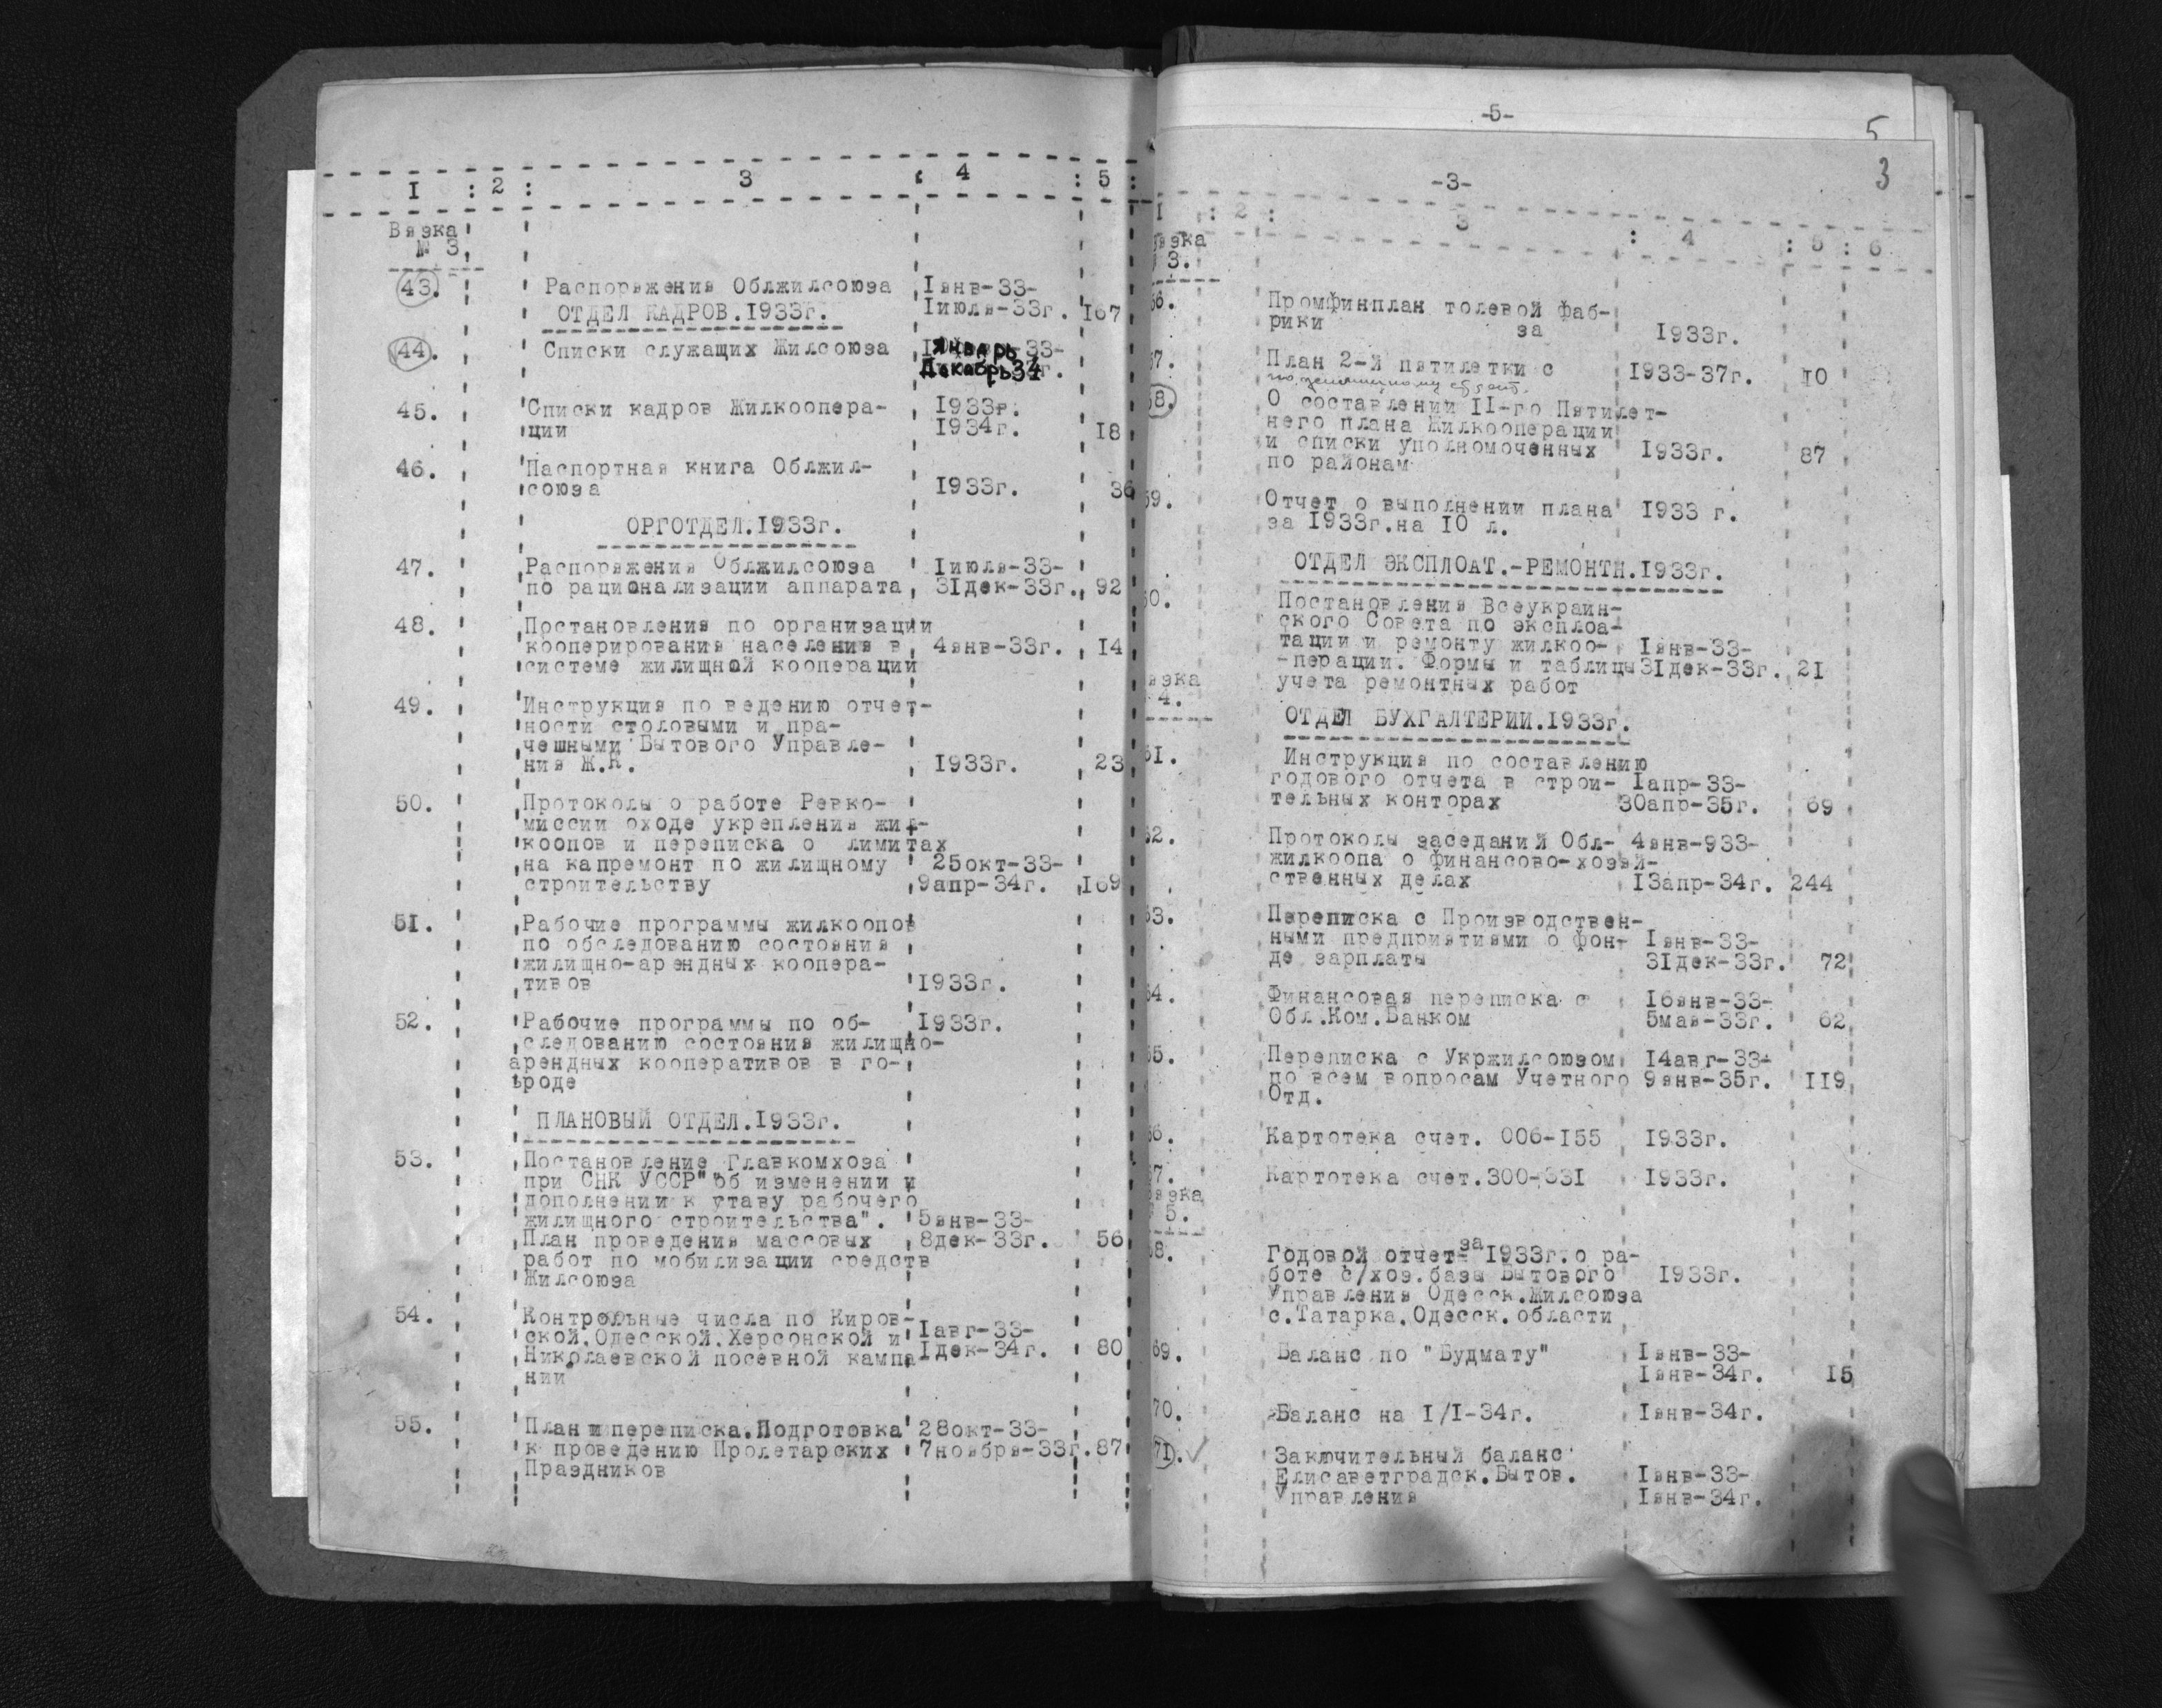 I : 2 : 3 : 4 : 5 :
Вязка
№ 3.
43. Распоряжения Облжилсоюза 1янв-33-
ОТДЕЛ КАДРОВ.1933г. 1июля-33г. 167
44. Списки служащих Жилсоюза Январь
Декабрь 34
45. Списки кадров Жилкоопера- 1933г.
ции 1934г. 18
46. Паспортная книга Облжил-
союза 1933г. 36
ОРГОТДЕЛ.1933г.
47. Распоряжения Облжилсоюза 1июля-33-
по рационализации аппарата 31дек-33г. 92
48. Постановления по организации
кооперирования населения в 4янв-33г. 14
системе жилищной кооперации
49. Инструкция по ведению отчет-
ности столовыми и пра-
чешными Бытового Управле-
ния Ж.К. 1933г. 23
50. Протоколы о работе Ревко-
миссии оходе укрепления жил-
коопов и переписка о лимитах
на капремонт по жилищному 25окт-33-
строительству 9апр-34г. 169
51. Рабочие программы жилкоопов
по обследованию состояния
жилищно-арендных коопера-
тивов 1933г.
52. Рабочие программы по об- 1933г.
следованию состояния жилищно-
арендных кооперативов в го-
роде
ПЛАНОВЫЙ ОТДЕЛ.1933г.
53. Постановление Главкомхоза
при СНК УССР"об изменении и
дополнении к утаву рабочего
жилищного строительства". 5янв-33-
План проведения массовых 8дек-33г. 56
работ по мобилизации средств
Жилсоюза
54. Контрольные числа по Киров-
ской.Одесской.Херсонской и 1авг-33-
Николаевской посевной кампа- 1дек-34г. 80
нии
55. План и переписка.Подготовка 28окт-33-
к проведению Пролетарских 7ноября-33г. 87
Праздников
-5-
5
3
-3-
I : 2 : 3 : 4 : 5 : 6
вязка
3.
56. Промфинплан толевой фаб-
рики за 1933г.
57. План 2-й пятилетки с 1933-37г. 10
58. О составлении II-го Пятилет-
него плана Жилкооперации
и списки уполномоченных 1933г. 87
по районам
59. Отчет о выполнении плана 1933 г.
за 1933г.на 10 л.
ОТДЕЛ ЭКСПЛОАТ.-РЕМОНТН.1933г.
60. Постановления Всеукраин-
ского Совета по эксплоа-
тации и ремонту жилкоо- 1янв-33-
-перации. Формы и таблицы 31дек-33г. 21
учета ремонтных работ
вязка
4.
ОТДЕЛ БУХГАЛТЕРИИ.1933г.
61. Инструкция по составлению
годового отчета в строи- 1апр-33-
тельных конторах 30апр-35г. 69
62. Протоколы заседаний Обл- 4янв-933-
жилкоопа о финансово-хозяй-
ственных делах 13апр-34г. 244
63. Переписка с Производствен-
ными предприятиями о фон- 1янв-33-
де зарплаты 31дек-33г. 72
64. Финансовая переписка с 16янв-33-
Обл.Ком.Банком 5мая-33г. 62
65. Переписка с Укржилсоюзом 14авг-33-
по всем вопросам Учетного 9янв-35г. 119
Отд.
66. Картотека счет. 006-155 1933г.
67. Картотека счет.300-331 1933г.
вязка
5.
68. Годовой отчет за 1933г.о ра-
боте с/хоз.базы Бытового 1933г.
Управления Одесск.Жилсоюза
с.Татарка.Одесск.области
69. Баланс по "Будмату" 1янв-33-
1янв-34г. 15
70. Баланс на I/I-34г. 1янв-34г.
71. Заключительный баланс
Елисаветградск.Бытов. 1янв-33-
Управления 1янв-34г.